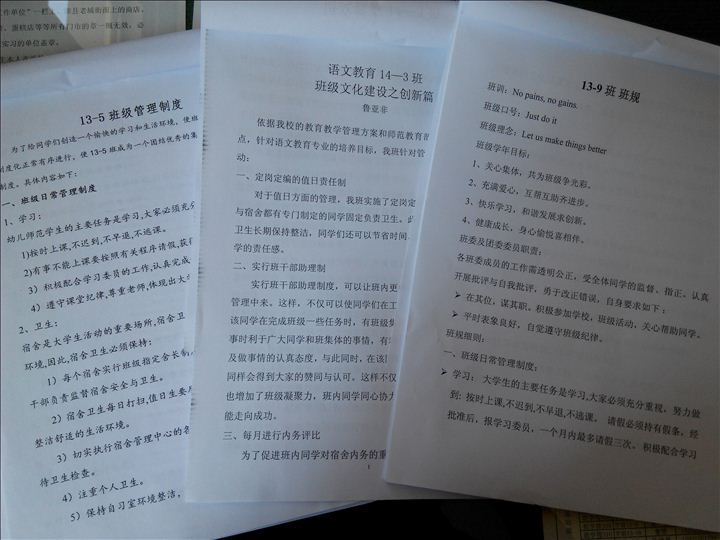 工作单位”一栏
县老城街面上的商店、
、蛋糕店等等所有门市的章一概无效，必
实习的单位盖章。
13-5 班级管理制度
为了给同学们创造一个愉快的学习和生活环境，使班
制度化正常有序进行。使 13-5 班成为一个团结优秀的集
制度。具体内容如下：
一、班级日常管理制度
1、学习：
幼儿师范学生的主要任务是学习,大家必须充分
1)按时上课,不迟到,不早退,不逃课。
2)有事不能上课要按照有关程序请假,获得
3）积极配合学习委员的工作,认真完成
4）遵守课堂纪律,尊重老师,体现出大
2、卫生：
宿舍是大学生活动的重要场所,宿舍卫
环境,因此,宿舍卫生必须保持：
1）每个宿舍实行班级指定舍长制,
干部负责监督宿舍安全与卫生。
2）宿舍卫生每日打扫,值日生要
整洁舒适的生活环境。
3）切实执行宿舍管理中心的各
待卫生检查。
4）注重个人卫生。
5）保持自习室环境整洁,
语文教育 14—3 班
班级文化建设之创新篇
鲁亚非
依据我校的教育教学管理方案和师范教育
点，针对语文教育专业的培养目标，我班针对管
动：
一、定岗定编的值日责任制
对于值日方面的管理，我班实施了定岗定
与宿舍都有专门制定的同学固定负责卫生。此
卫生长期保持整洁，同学们还可以节省时间
学的责任感。
二、实行班干部助理制
实行班干部助理制度，可以让班内更
管理中来。这样，不仅可以使同学们在工
该同学在完成班级一些任务时，有班级
事时利于广大同学和班集体的事情，有
及做事情的认真态度，与此同时，在该
同样会得到大家的赞同与认可。这样不仅
也增加了班级凝聚力，班内同学同心协力
能走向成功。
三、每月进行内务评比
为了促进班内同学对宿舍内务的重
1
13-9 班 班规
班训：No pains, no gains.
班级口号：Just do it
班级理念：Let us make things better
班级学年目标：
1、关心集体，共为班级争光彩。
2、充满爱心，互帮互助齐进步。
3、快乐学习，和谐发展求创新。
4、健康成长，身心愉悦喜相伴。
班委及团委委员职责：
各班委成员的工作需透明公正，受全体同学的监督、指正。认真
开展批评与自我批评，勇于改正错误，自身要求如下：
➢ 在其位，谋其职。积极参加学校，班级活动，关心帮助同学。
➢ 平时表象良好，自觉遵守班级纪律。
班规细则：
一、班级日常管理制度：
➢ 学习： 大学生的主要任务是学习,大家必须充分重视，努力做
到: 按时上课,不迟到,不早退,不逃课。 请假必须持有假条，经
批准后，报学习委员，一个月内最多请假三次。 积极配合学习